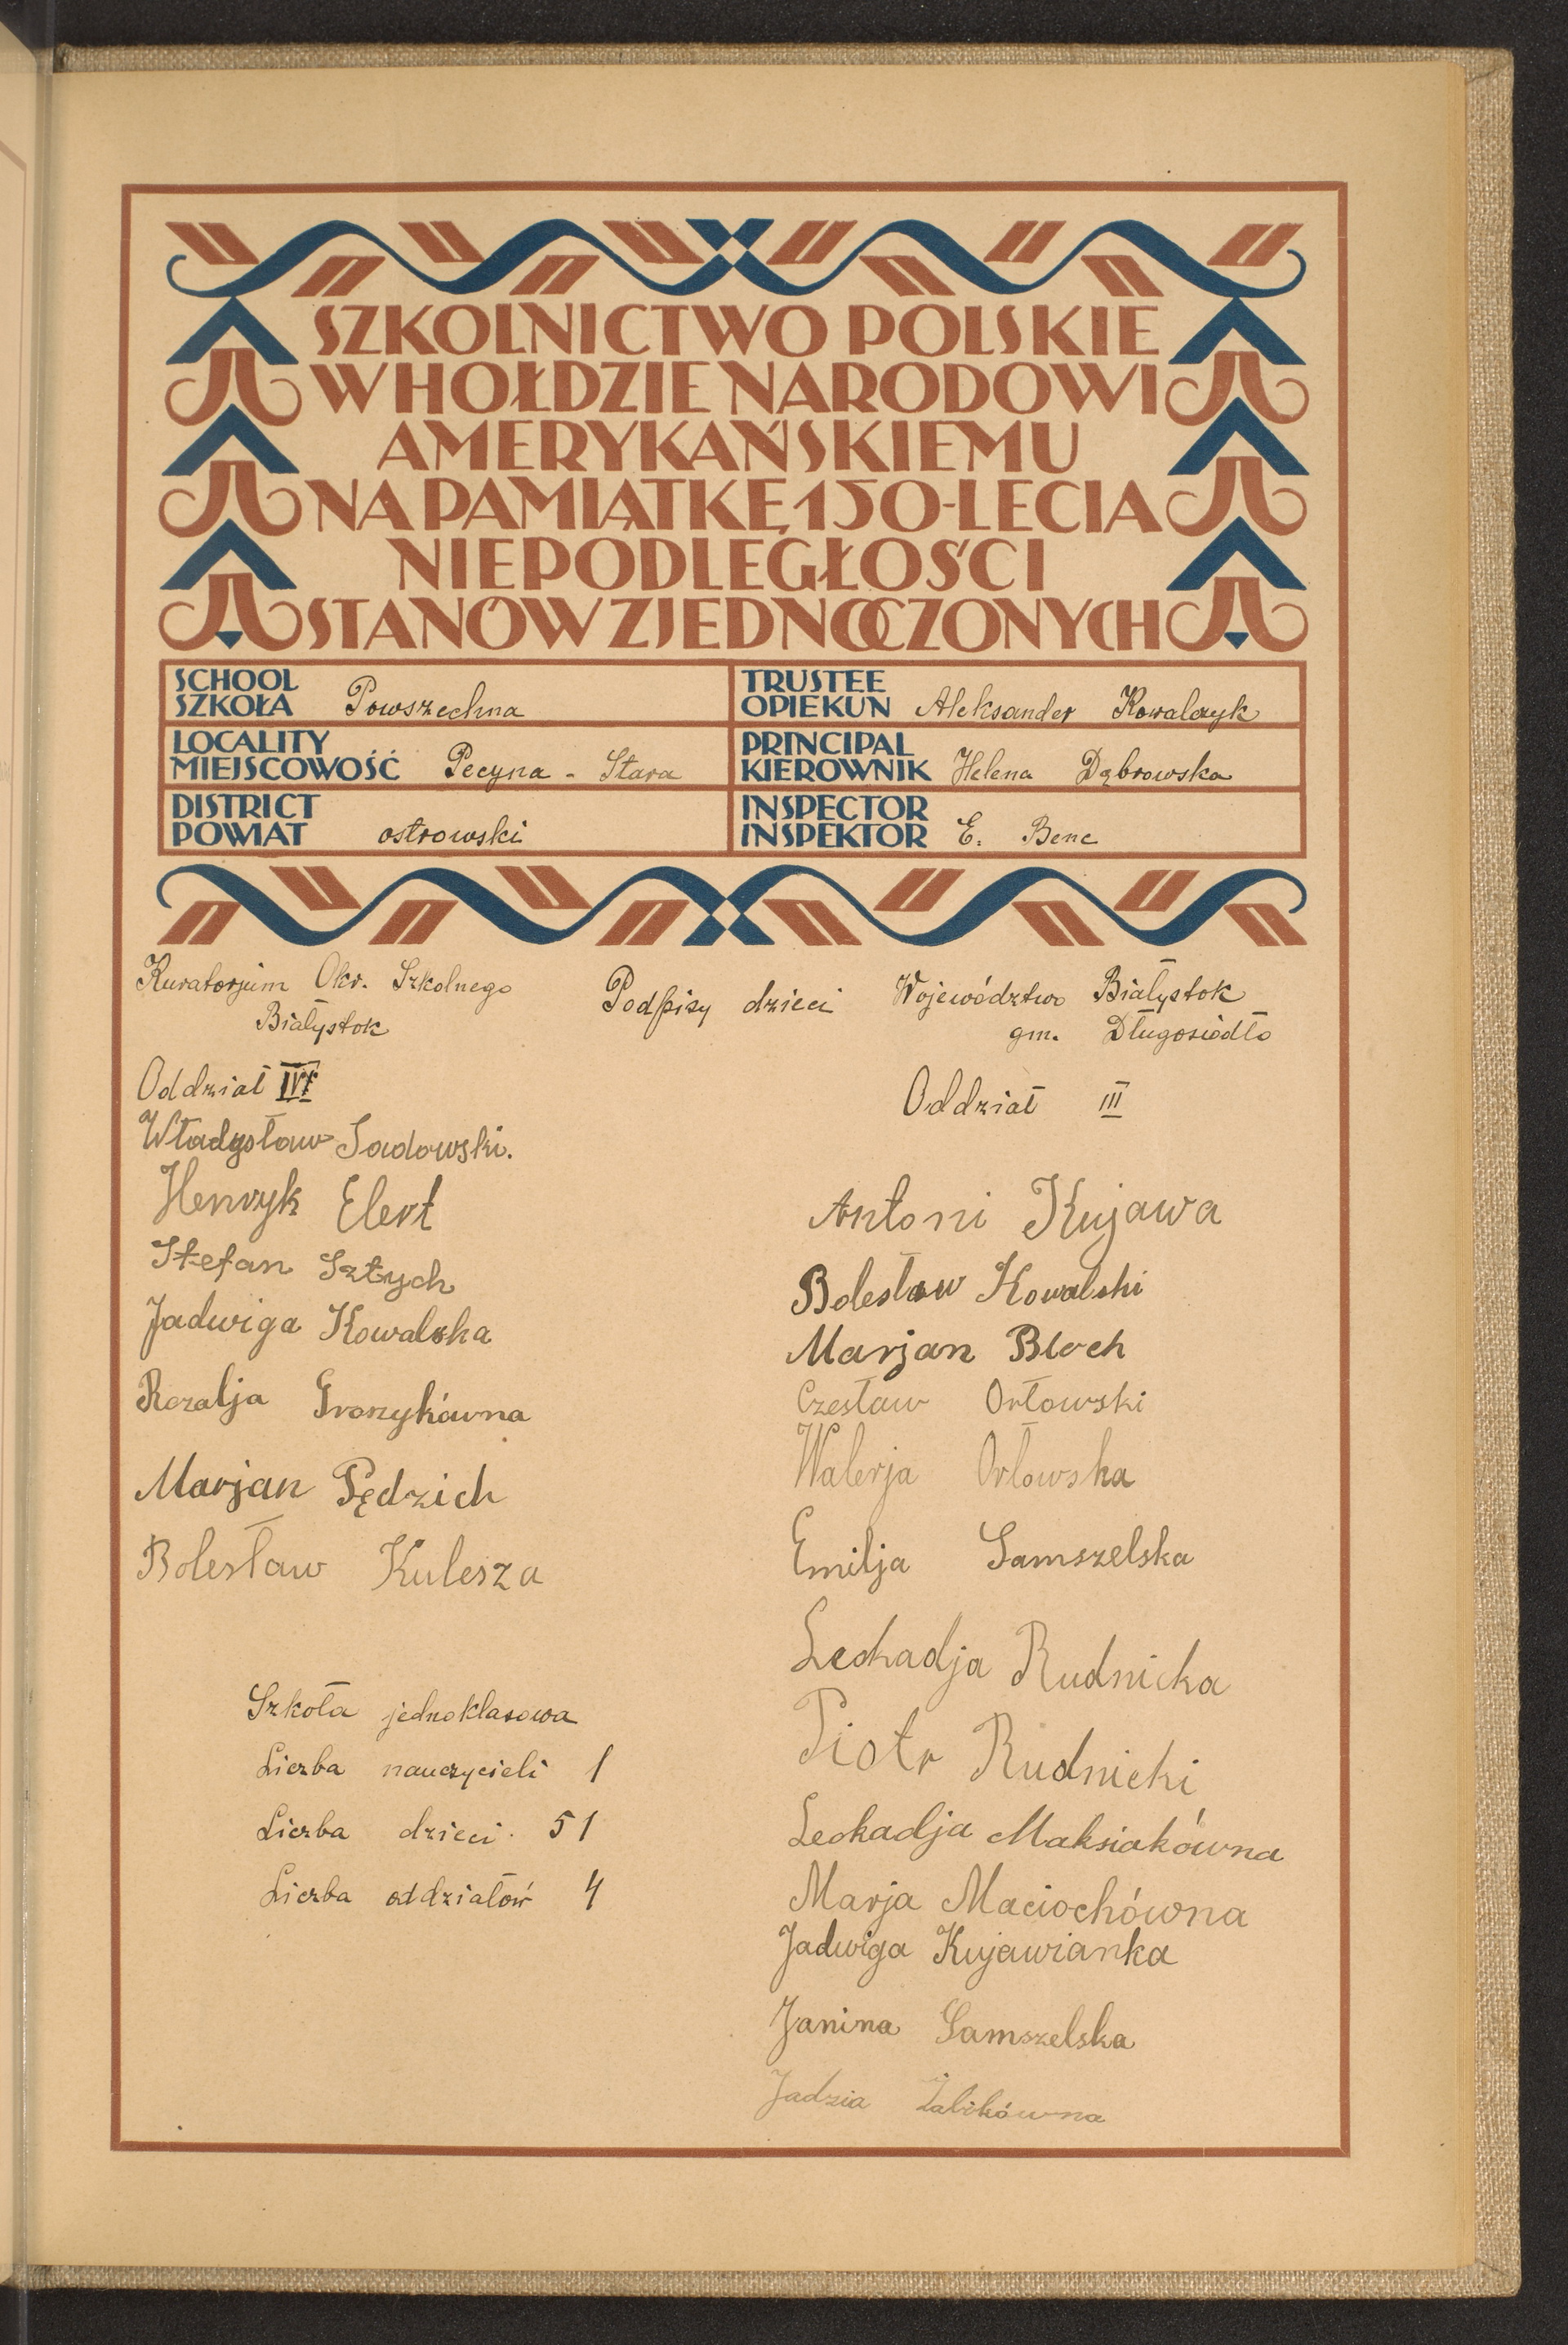 SZKOLNICTWO POLSKIE
W HOŁDZIE NARODOWI
AMERYKAŃSKIEMU
NA PAMIĄTKĘ 150-LECIA
NIEPODLEGŁOŚCI
STANÓW ZJEDNOCZONYCH
SCHOOL
SZKOŁA Powszechna
TRUSTEE
OPIEKUN Aleksander Kowalczyk
LOCALITY
MIEJSCOWOŚĆ Pecyna - Stara
PRINCIPAL
KIEROWNIK Helena Dąbrowska
DISTRICT
POWIAT ostrowski
INSPECTOR
INSPEKTOR E. Benc
Kuratorjum Okr. Szkolnego
Białystok
Podpisy dzieci
Województwo Białystok
gm. Długosiodło
Oddział IV
Władysław Sadowski.
Henryk Elert
Stefan Sztych
Jadwiga Kowalska
Rozalja Groszykówna
Marjan Pędzich
Bolesław Kulesza
Szkoła jednoklasowa
Liczba nauczycieli 1
Liczba dzieci. 51
Liczba oddziałów 4
Oddział III
Antoni Kujawa
Bolesław Kowalski
Marjan Bloch
Czesław Orłowski
Walerja Orłowska
Emilja Samszelska
Leokadja Rudnicka
Piotr Rudnicki
Leokadja Maksiakówna
Marja Maciochówna
Jadwiga Kujawianka
Janina Samszelska
Jadzia Żabikówna